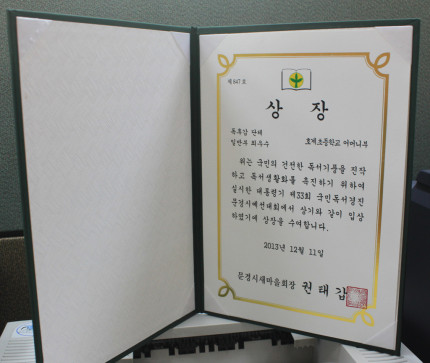 제 647 호
상 장
독후감 단체
일반부 최우수
호계초등학교 어머니부
위는 국민의 건전한 독서기풍을 진작
하고 독서생활화를 촉진하기 위하여
실시한 대통령기 제33회 국민독서경진
문경시예선대회에서 상기와 같이 입상
하였기에 상장을 수여합니다.
2013년 12월 11일
문경시새마을회장 권 태 갑